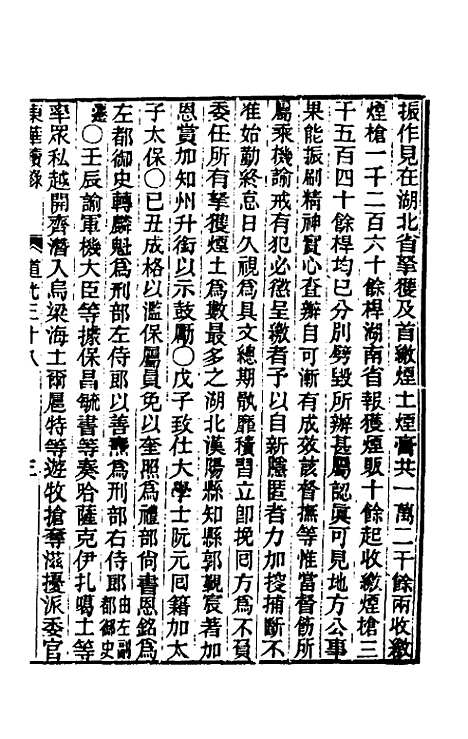 振作見在湖北省拏獲及首繳煙土煙膏共一萬二千餘兩收繳
煙槍一千二百六十餘桿湖南省報獲煙販十餘起收繳煙槍三
千五百四十餘桿均已分別劈毀所辦甚屬認眞可見地方公事
果能振刷精神實心查辦自可漸有成效該督撫等惟當督飭所
屬乘機諭戒有犯必懲呈繳者予以自新隱匿者力加搜捕斷不
准始勤終怠日久視爲具文總期敝靡積習立卽挽回方爲不負
委任所有拏獲煙土爲數最多之湖北漢陽縣知縣郭覲宸著加
恩賞加知州升銜以示鼓勵〇戊子致仕大學士阮元回籍加太
子太保〇己丑成格以濫保屬員免以奎照爲禮部尙書恩銘爲
左都御史轉麟魁爲刑部左侍郎以善燾爲刑部右侍郎由左副都御史
遷〇壬辰諭軍機大臣等據保昌毓書等奏哈薩克伊扎噶土等
率眾私越開齊潛入烏梁海土爾扈特等遊牧搶奪滋擾派委官
東華續錄 道光三十八 三